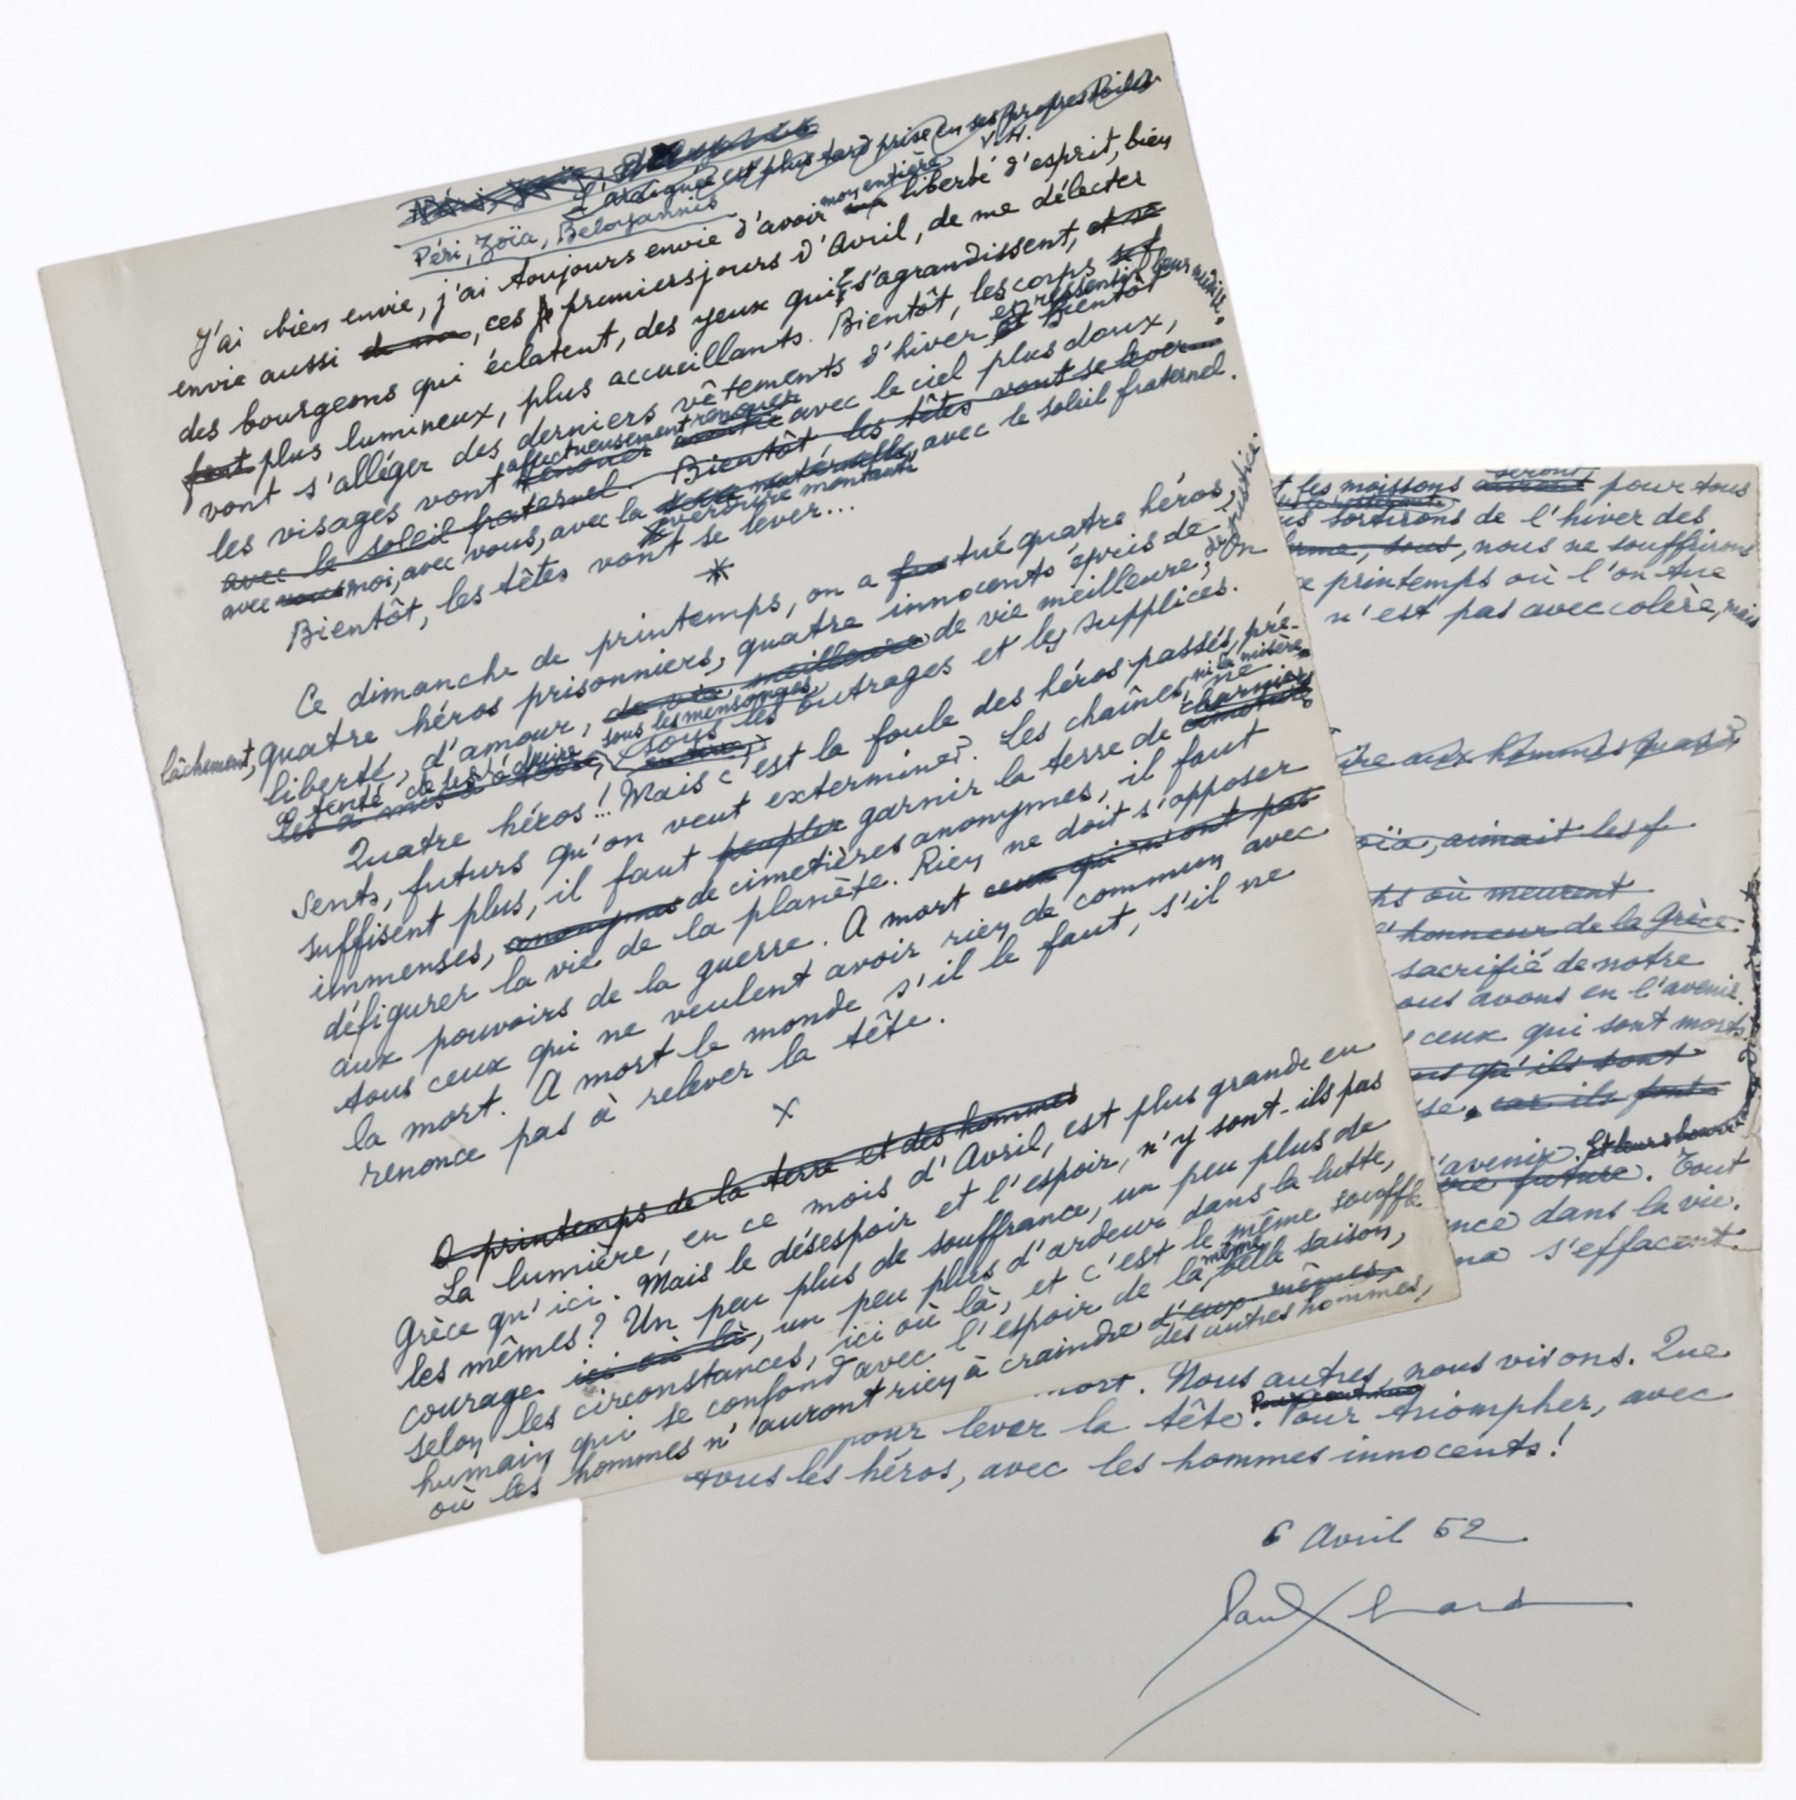 L'araignée est plus tard prise en ses propres toiles
V.H.
Péri, Zoïa, Beloyannis
J'ai bien envie, j'ai toujours envie d'avoir mon entière liberté d'esprit, bien
envie aussi de me, ces premiers jours d'Avril, de me délecter
des bourgeons qui éclatent, des yeux qui s'agrandissent, et se
font plus lumineux, plus accueillants. Bientôt, les corps
vont s'alléger des derniers vêtements d'hiver et ressentir leur Bientôt
les visages vont affectueusement renouer avec le ciel plus doux,
avec le soleil fraternel. Bientôt, les têtes vont se lever...
avec vous moi, avec vous, avec la verdure montante, avec le soleil fraternel.
Bientôt, les têtes vont se lever...
*
Ce dimanche de printemps, on a tué quatre héros,
lâchement, quatre héros prisonniers, quatre innocents épris de
liberté, d'amour, de vie meilleure de vie meilleure, de justice. On
a tenté de les réduire sous les mensonges, sous les outrages et les supplices.
Quatre héros! Mais c'est la foule des héros passés, pré-
sents, futurs qu'on veut exterminer. Les chaînes, ni la misère ne
suffisent plus, il faut peupler garnir la terre de charniers
immenses, anonymes de cimetières anonymes, il faut
défigurer la vie de la planète. Rien ne doit s'opposer
aux pouvoirs de la guerre. A mort ceux qui n'ont pas
tous ceux qui ne veulent avoir rien de commun avec
la mort. A mort le monde s'il le faut, s'il ne
renonce pas à relever la tête.
x
O printemps de la terre et des hommes
La lumière, en ce mois d'Avril, est plus grande en
Grèce qu'ici. Mais le désespoir et l'espoir, n'y sont-ils pas
les mêmes? Un peu plus de souffrance, un peu plus de
courage ici ou là, un peu plus d'ardeur dans la lutte,
selon les circonstances, ici ou là, et c'est le même souffle
humain qui se confond avec l'espoir de la même belle saison,
où les hommes n'auront rien à craindre d'eux-mêmes,
des autres hommes,
t les moissons seront pour tous
us sortirons de l'hiver des
, sous, nous ne souffrirons
ce printemps où l'on tue
n'est pas avec colère, mais
ire aux hommes
oïa, aimait les f
ps où meurent
l'honneur de la Grèce.
sacrifié de notre
ous avons en l'avenir.
ceux qui sont morts
qu'ils sont
se. car ils font
l'avenir. Et leurs bourre
future. Tout
nce dans la vie.
s'effacent.
mort. Nous autres, nous vivons. Que
pour lever la tête. Pour continuer Pour triompher, avec
tous les héros, avec les hommes innocents!
6 Avril 52
Paul Eluard